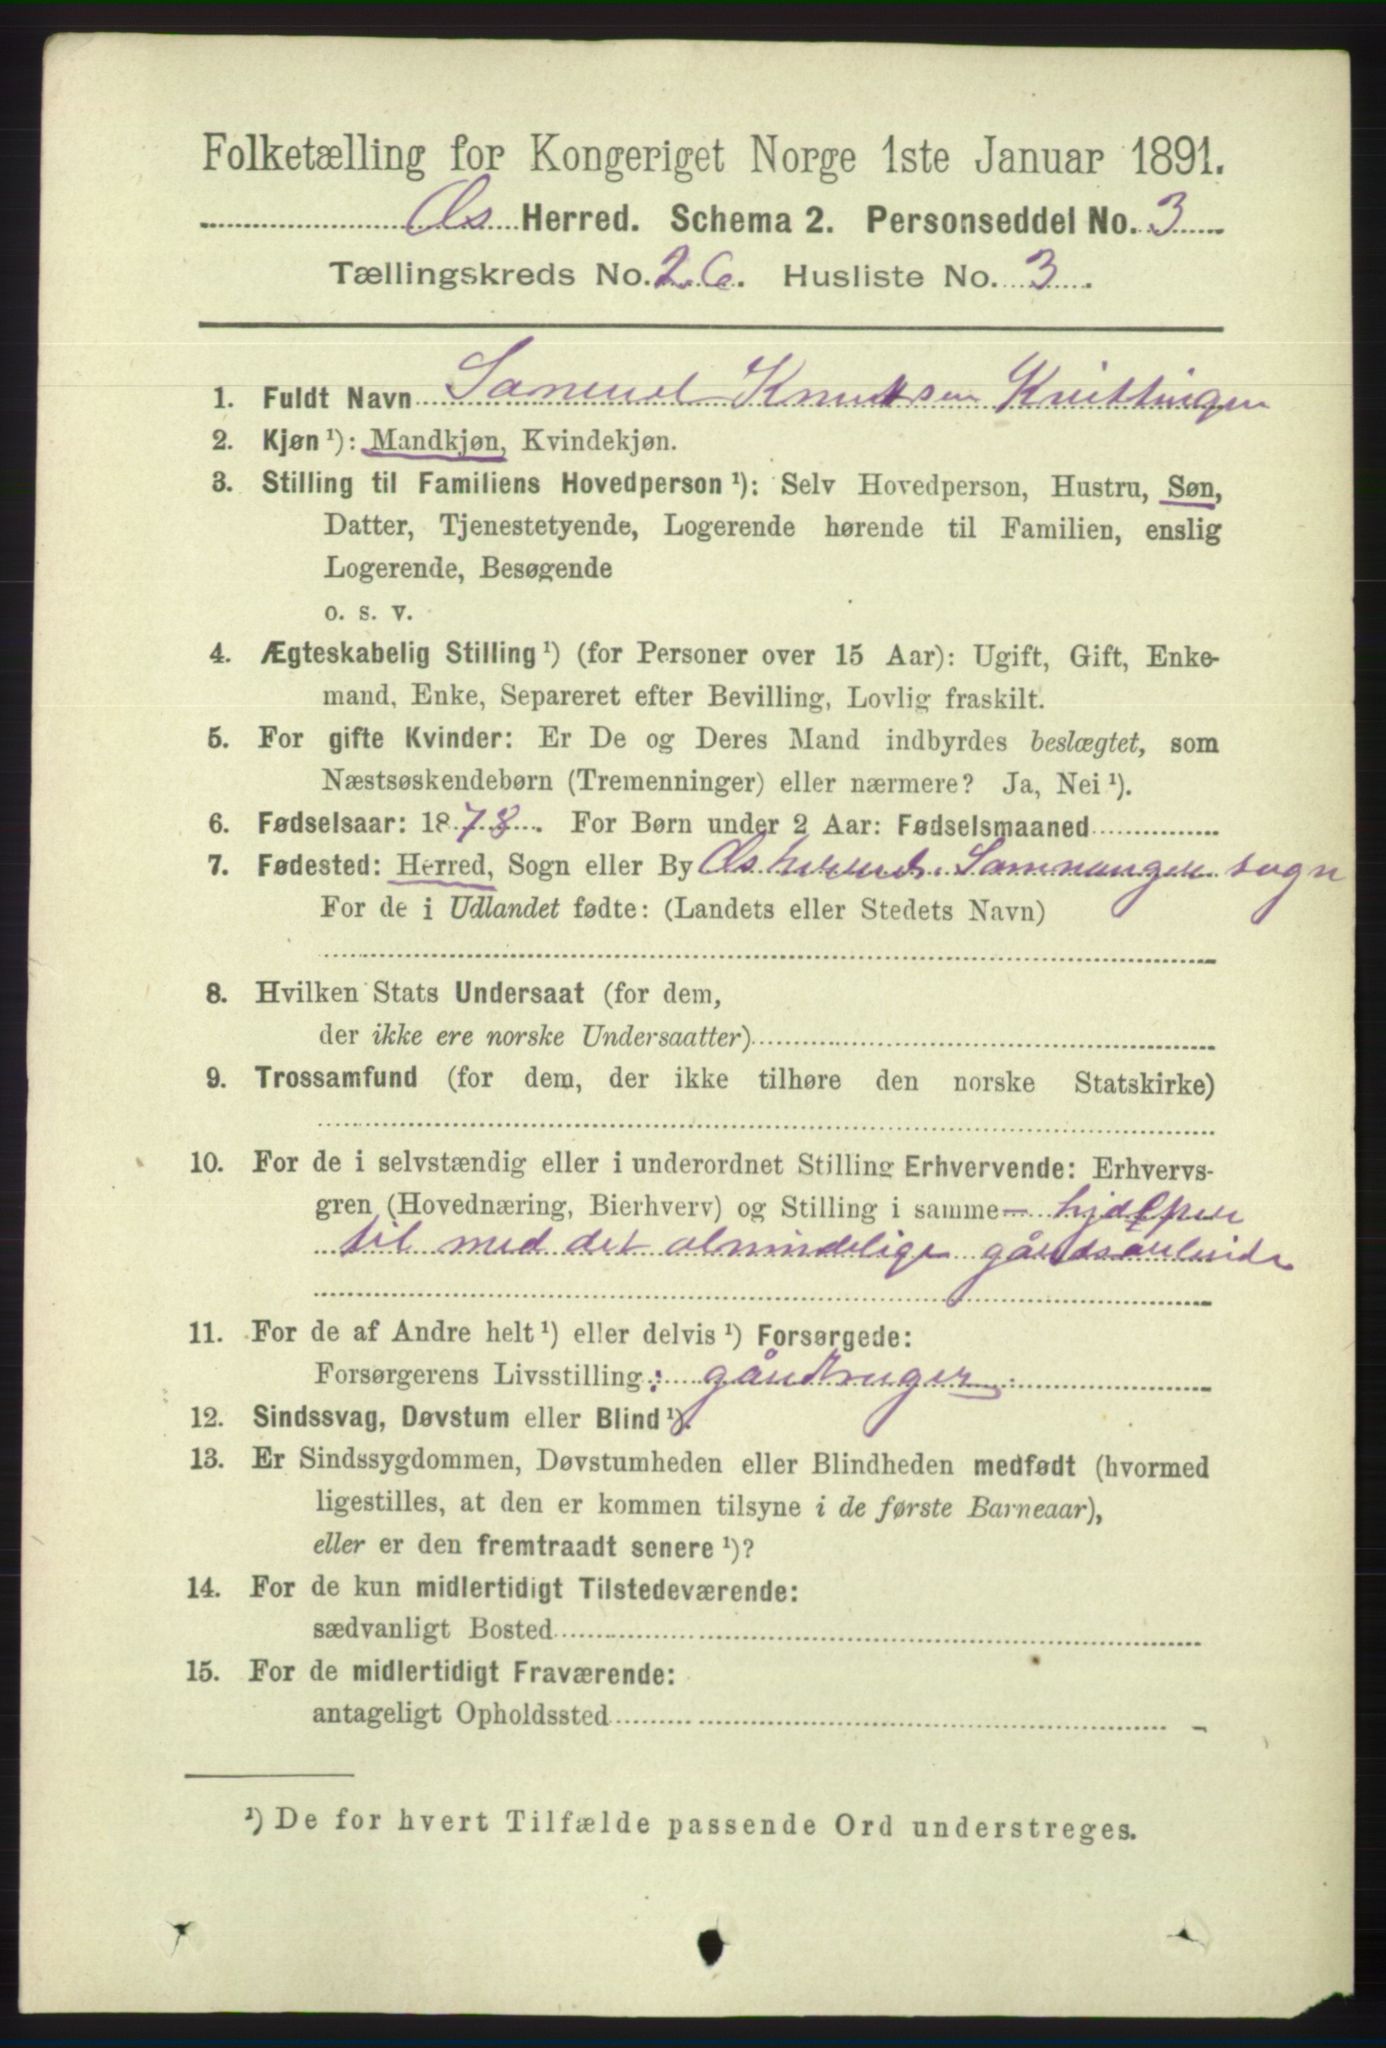 Folketælling for Kongeriget Norge 1ste Januar 1891.
Os Herred. Schema 2. Personseddel No. 3
Tællingskreds No. 26. Husliste No. 3.
1. Fuldt Navn Samuel Knutsen Knittingen
2. Kjøn ¹): Mandkjøn, Kvindekjøn.
3. Stilling til Familiens Hovedperson ¹): Selv Hovedperson, Hustru, Søn,
Datter, Tjenestetyende, Logerende hørende til Familien, enslig
Logerende, Besøgende
o. s. v.
4. Ægteskabelig Stilling ¹) (for Personer over 15 Aar): Ugift, Gift, Enke-
mand, Enke, Separeret efter Bevilling, Lovlig fraskilt.
5. For gifte Kvinder: Er De og Deres Mand indbyrdes beslægtet, som
Næstsøskendebørn (Tremenninger) eller nærmere? Ja, Nei ¹).
6. Fødselsaar: 1878. For Børn under 2 Aar: Fødselsmaaned
7. Fødested: Herred, Sogn eller By Os herred. Samnanger sogn
For de i Udlandet fødte: (Landets eller Stedets Navn)
8. Hvilken Stats Undersaat (for dem,
der ikke ere norske Undersaatter)
9. Trossamfund (for dem, der ikke tilhøre den norske Statskirke)
10. For de i selvstændig eller i underordnet Stilling Erhvervende: Erhvervs-
gren (Hovednæring, Bierhverv) og Stilling i samme— hjælper
til med det almindelige gårdsarbeide
11. For de af Andre helt ¹) eller delvis ¹) Forsørgede:
Forsørgerens Livsstilling: gårdbruger
12. Sindssvag, Døvstum eller Blind ¹).
13. Er Sindssygdommen, Døvstumheden eller Blindheden medfødt (hvormed
ligestilles, at den er kommen tilsyne i de første Barneaar),
eller er den fremtraadt senere ¹)?
14. For de kun midlertidigt Tilstedeværende:
sædvanligt Bosted
15. For de midlertidigt Fraværende:
antageligt Opholdssted
¹) De for hvert Tilfælde passende Ord understreges.